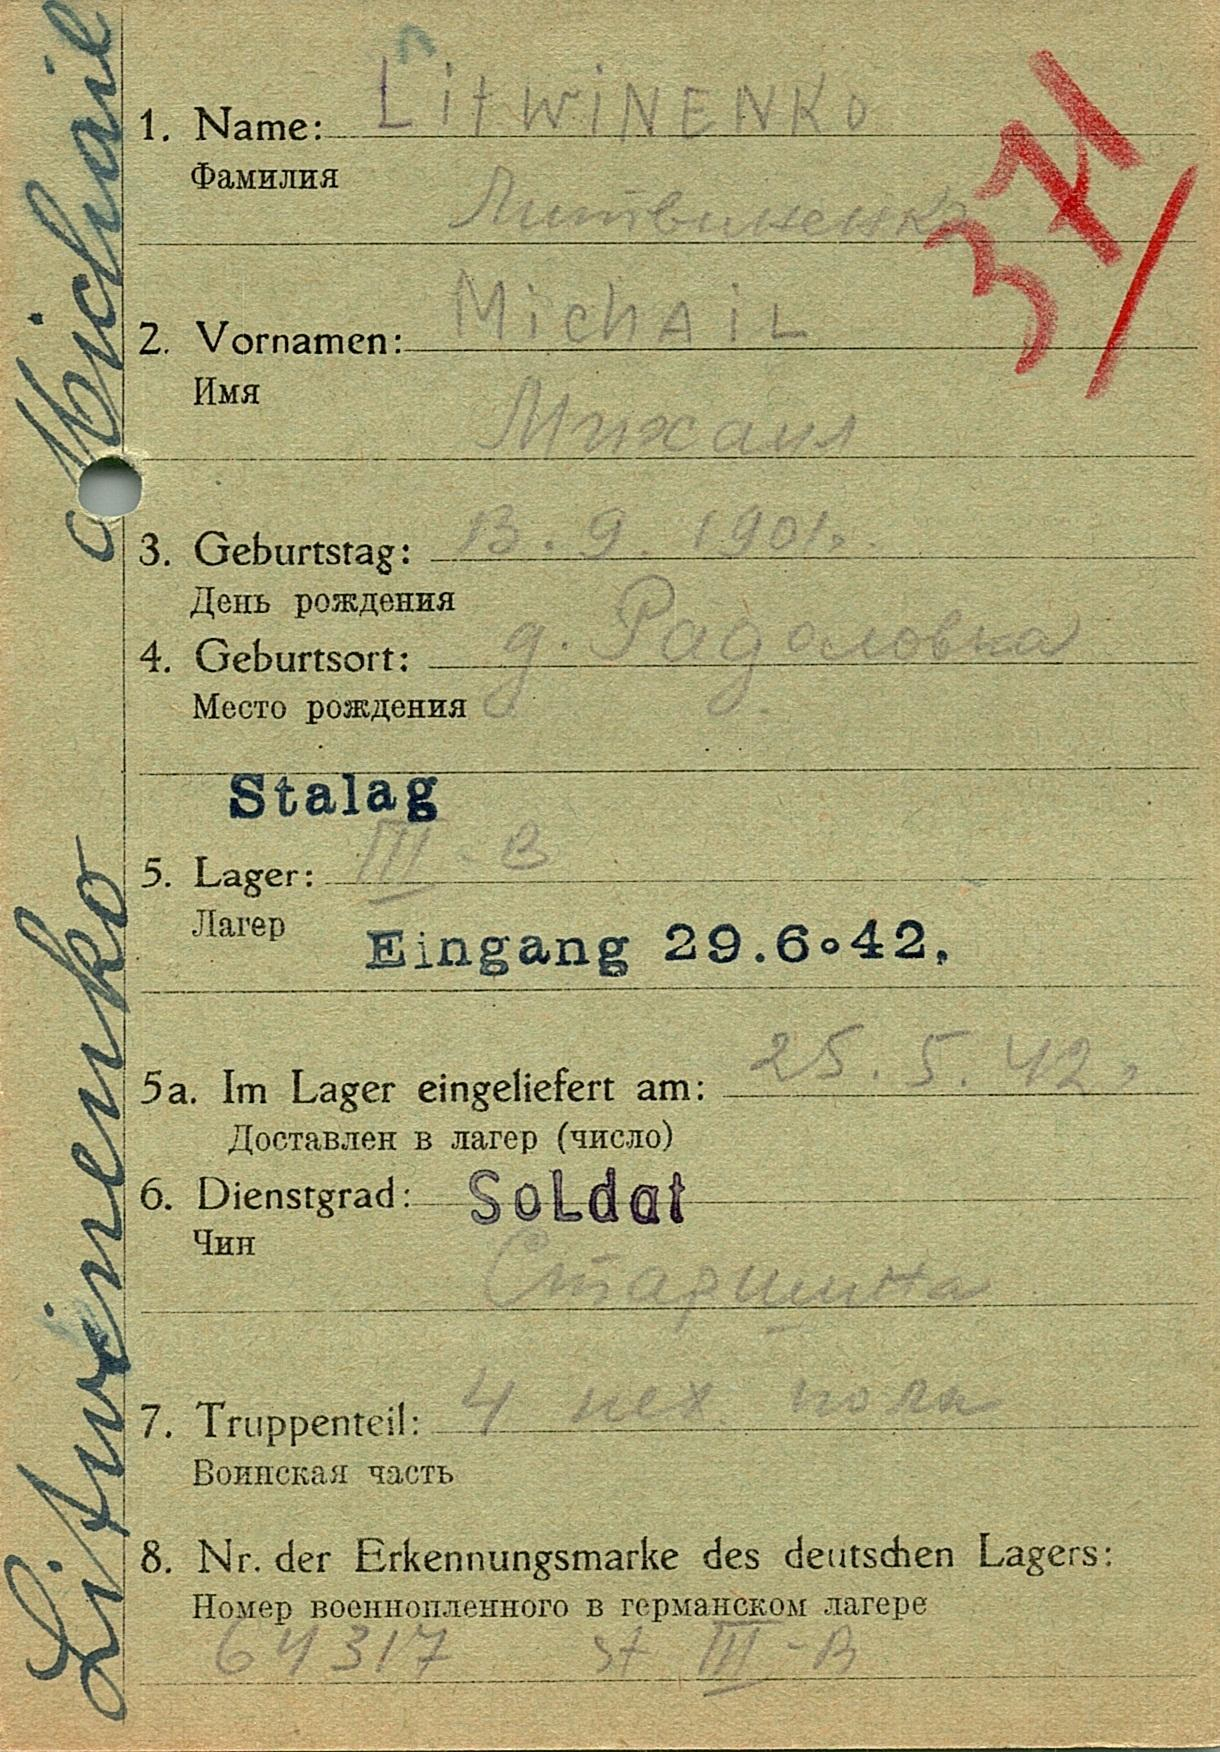 Litwinenko Michail
371/
1. Name: LitWiNENKo
Фамилия
Литвиненко
2. Vornamen: MichAiL
Имя
Михаил
3. Geburtstag: 13.9.1901.
День рождения
4. Geburtsort: д. Радоловка
Место рождения
Stalag
5. Lager: III-B
Лагер
Eingang 29.6.42.
5a. Im Lager eingeliefert am: 25.5.42.
Доставлен в лагер (число)
6. Dienstgrad: SoLdat
Чин
Старшина
7. Truppenteil: 4 пех. полк
Воинская часть
8. Nr. der Erkennungsmarke des deutschen Lagers:
Номер военнопленного в германском лагере
64317 St III-B